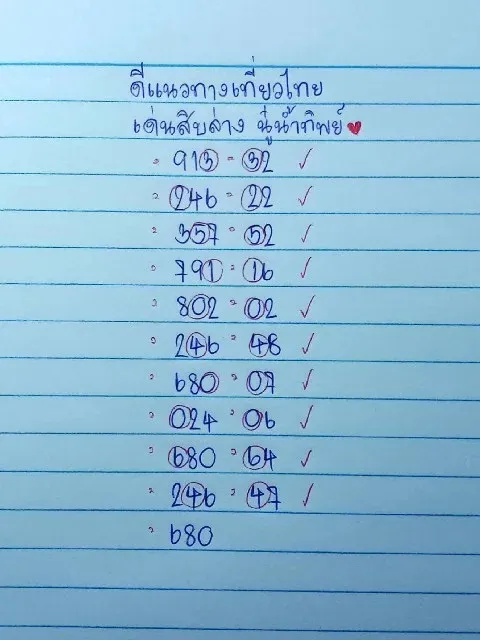 ดีแนวทางเที่ยวไทย
เด่นสิบล่าง นู่น้ำทิพย์
913 = 32 ✓
246 = 22 ✓
357 = 52 ✓
791 = 16 ✓
802 = 02 ✓
246 = 48 ✓
680 = 07 ✓
024 = 06 ✓
680 = 64 ✓
246 = 47 ✓
680